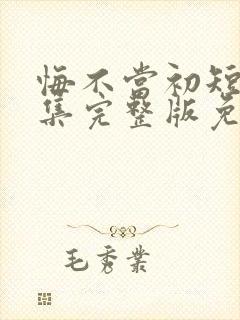 悔不当初短
集完整版免
毛秀业